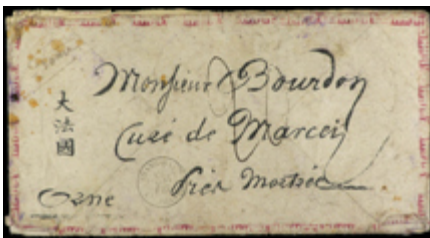 Monsieur Bourdon
Curé de Marcei
près Mortrée
Orne
大法國